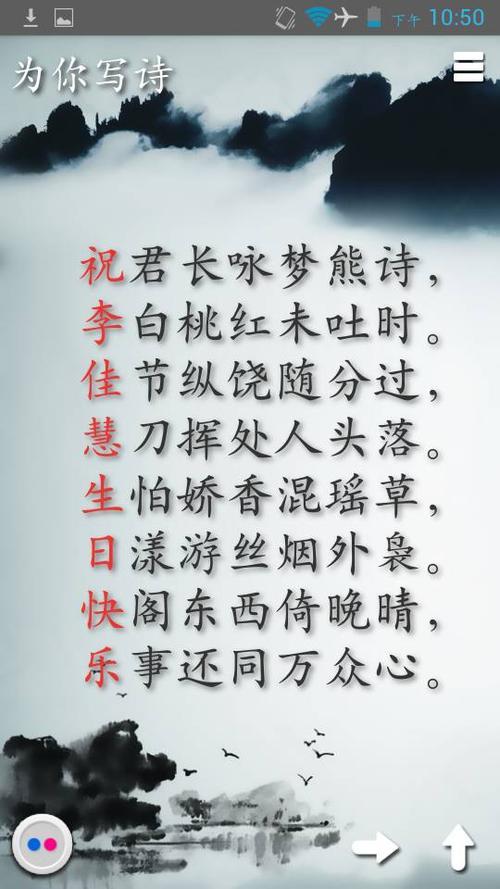 下午 10:50
为你写诗
祝君长咏梦熊诗，
李白桃红未吐时。
佳节纵饶随分过，
慧刀挥处人头落。
生怕娇香混瑶草，
日漾游丝烟外袅。
快阁东西倚晚晴，
乐事还同万众心。